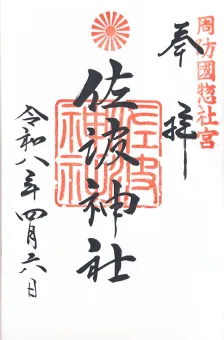 周防國惣社宮
奉拝
佐波神社
佐波神社
令和八年四月六日